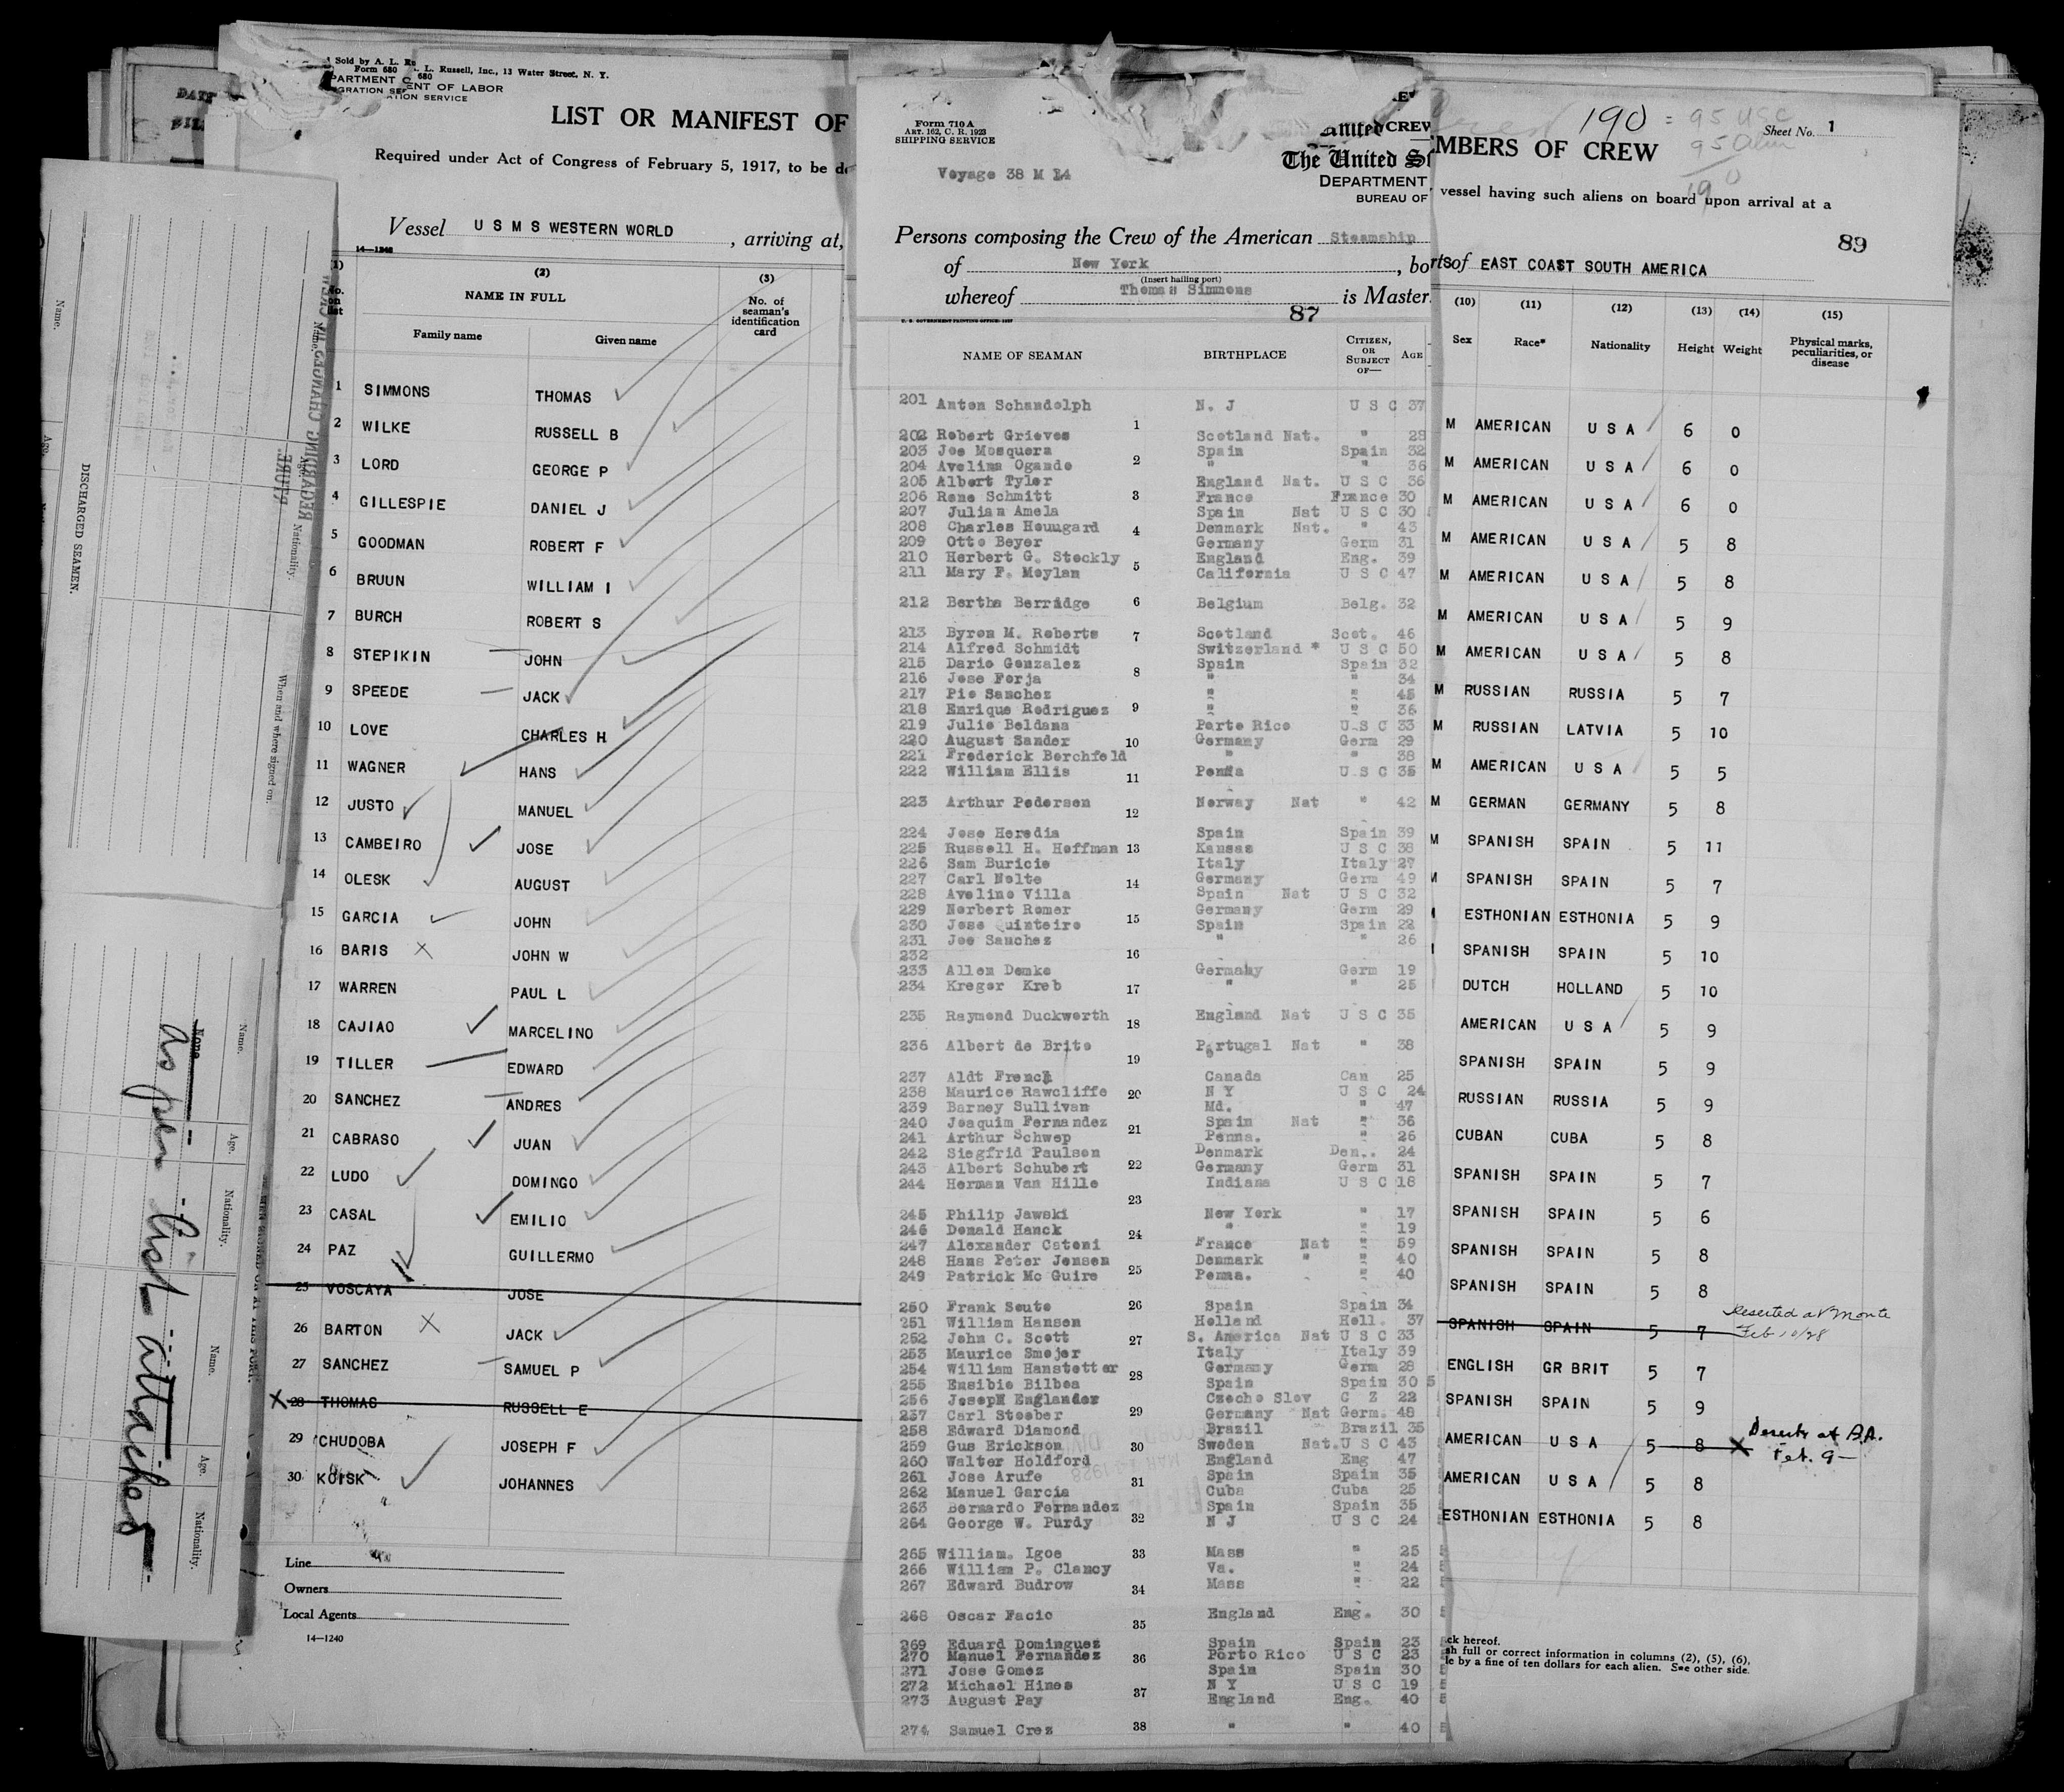 Sold by A. L. Ru
Form 680
L. Russell, Inc., 13 Water Street, N. Y.
680
PARTMENT
ENT OF LABOR
GRATION SER
ATION SERVICE
LIST OR MANIFEST OF
Required under Act of Congress of February 5, 1917, to be de
Vessel U S M S WESTERN WORLD , arriving at,
14—1240
(1) (2) (3)
No. on list
NAME IN FULL
No. of seaman's identification card
Family name Given name
1 SIMMONS THOMAS
2 WILKE RUSSELL B
3 LORD GEORGE P
4 GILLESPIE DANIEL J
5 GOODMAN ROBERT F
6 BRUUN WILLIAM I
7 BURCH ROBERT S
8 STEPIKIN JOHN
9 SPEEDE JACK
10 LOVE CHARLES H
11 WAGNER HANS
12 JUSTO MANUEL
13 CAMBEIRO JOSE
14 OLESK AUGUST
15 GARCIA JOHN
16 BARIS X JOHN W
17 WARREN PAUL L
18 CAJIAO MARCELINO
19 TILLER EDWARD
20 SANCHEZ ANDRES
21 CABRASO JUAN
22 LUDO DOMINGO
23 CASAL EMILIO
24 PAZ GUILLERMO
25 VOSCAYA JOSE
26 BARTON X JACK
27 SANCHEZ SAMUEL P
X 28 THOMAS RUSSELL E
29 CHUDOBA JOSEPH F
30 KOISK JOHANNES
Line
Owners
Local Agents
14—1240
Form 710 A
ART. 162, C. R. 1923
SHIPPING SERVICE
Voyage 38 M 14
United CREW
The United St
DEPARTMENT
BUREAU OF
Persons composing the Crew of the American Steamship
of New York , bo
(Insert hailing port)
whereof Thomas Simmons is Master
U. S. GOVERNMENT PRINTING OFFICE
87
NAME OF SEAMAN BIRTHPLACE CITIZEN, OR SUBJECT OF— AGE
201 Anton Schandolph N. J U S C 37
1
202 Robert Grieves Scotland Nat. " 28
203 Joe Mosquera Spain Spain 32
204 Avelina Ogando 2 " " 36
205 Albert Tyler England Nat. U S C 36
206 Rene Schmitt 3 France France 30
207 Julian Amela Spain Nat U S C 30
208 Charles Houugard 4 Denmark Nat. " 43
209 Otto Beyer Germany Germ 31
210 Herbert G. Steckly England Eng. 39
211 Mary F. Moylan 5 California U S C 47
212 Bertha Berridge 6 Belgium Belg. 32
213 Byron M. Roberts 7 Scotland Scot. 46
214 Alfred Schmidt Switzerland * U S C 50
215 Dario Gonzalez 8 Spain Spain 32
216 Jose Forja " " 34
217 Pio Sanchez " " 45
218 Enrique Rodriguez 9 " " 36
219 Julio Beldana Porto Rico U.S C 33
220 August Sander 10 Germany Germ 29
221 Frederick Borchfeld " 38
222 William Ellis 11 Penna U.S C 35
223 Arthur Pedersen 12 Norway Nat " 42
224 Jose Heredia Spain Spain 39
225 Russell H. Hoffman 13 Kansas U S C 38
226 Sam Buricie Italy Italy 27
227 Carl Nolte 14 Germany Germ 49
228 Aveline Villa Spain Nat U S C 32
229 Norbert Romer Germany Germ 29
230 Jose Quinteiro 15 Spain Spain 22
231 Joe Sanchez " " 26
232 16
233 Allen Demke Germany Germ 19
234 Kreger Kreb 17 " " 25
235 Raymond Duckworth 18 England Nat U S C 35
236 Albert de Brito 19 Portugal Nat " 38
237 Aldt French Canada Can 25
238 Maurice Rawcliffe 20 N Y U S C 24
239 Barney Sullivan Md. " 47
240 Joaquim Fernandez Spain Nat " 36
241 Arthur Schwep 21 Penna. " 26
242 Siegfrid Paulsen Denmark Den.. 24
243 Albert Schubert 22 Germany Germ 31
244 Herman Van Hille Indiana U S C 18
23
245 Philip Jawski New York " 17
246 Donald Hanck 24 " " 19
247 Alexander Catoni France Nat " 59
248 Hans Peter Jensen Denmark " " 40
249 Patrick Mc Guire 25 Penna. " 40
250 Frank Souto 26 Spain Spain 34
251 William Hansen Holland Holl. 37
252 John C. Scott 27 S. America Nat U S C 33
253 Maurice Smojer Italy Italy 39
254 William Hanstetter 28 Germany Germ 28
255 Ensibio Bilboa Spain Spain 30 5
256 Joseph Englander Czecho Slov C Z 22
257 Carl Stoeber 29 Germany Nat Germ. 48
258 Edward Diamond Brazil Brazil 35
259 Gus Erickson 30 Sweden Nat. U S C 43
260 Walter Holdford England Eng 47
261 Jose Arufe 31 Spain Spain 35
262 Manuel Garcia Cuba Cuba 25
263 Bernardo Fernandez Spain Spain 35
264 George W. Purdy 32 N J U S C 24
265 William. Igoe 33 Mass " 25
266 William P. Clancy Va. " 24
267 Edward Budrow 34 Mass " 22
268 Oscar Facio England Eng. 30
35
269 Eduard Dominguez Spain Spain 23
270 Manuel Fernandez 36 Porto Rico U S C 23
271 Jose Gomez Spain Spain 30
272 Michael Hines N Y U S C 19
273 August Pay 37 England Eng. 40
274 Samuel Crez 38 " " 40
190 = 95 USC
95 Alien
190
Sheet No. 1
MBERS OF CREW
vessel having such aliens on board upon arrival at a
89
rts of EAST COAST SOUTH AMERICA
(10) (11) (12) (13) (14) (15)
Sex Race* Nationality Height Weight Physical marks, peculiarities, or disease
M AMERICAN U S A 6 0
M AMERICAN U S A 6 0
M AMERICAN U S A 6 0
M AMERICAN U S A 5 8
M AMERICAN U S A 5 8
M AMERICAN U S A 5 9
M AMERICAN U S A 5 8
M RUSSIAN RUSSIA 5 7
M RUSSIAN LATVIA 5 10
M AMERICAN U S A 5 5
M GERMAN GERMANY 5 8
M SPANISH SPAIN 5 11
M SPANISH SPAIN 5 7
ESTHONIAN ESTHONIA 5 9
SPANISH SPAIN 5 10
DUTCH HOLLAND 5 10
AMERICAN U S A 5 9
SPANISH SPAIN 5 9
RUSSIAN RUSSIA 5 9
CUBAN CUBA 5 8
SPANISH SPAIN 5 7
SPANISH SPAIN 5 6
SPANISH SPAIN 5 8
SPANISH SPAIN 5 8
SPANISH SPAIN 5 7 Deserted at Monte
Feb 10/28
ENGLISH GR BRIT 5 7
SPANISH SPAIN 5 9
AMERICAN U S A 5 8 X Deserts at B.A.
Feb. 9—
AMERICAN U S A 5 8
ESTHONIAN ESTHONIA 5 8
ck hereof.
sh full or correct information in columns (2), (5), (6),
le by a fine of ten dollars for each alien. See other side.
DISCHARGED SEAMEN.
Name.
Age.
Nationality.
When and where signed on.
REGARDING CHANGES IN CREW
Name. Age. Nationality. Name. Age. Nationality.
None
As per list attached